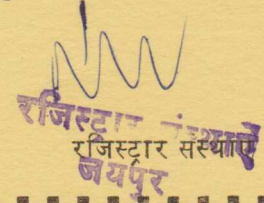 रजिस्ट्रार संस्थाएँ
रजिस्ट्रार संस्थाएँ
जयपुर